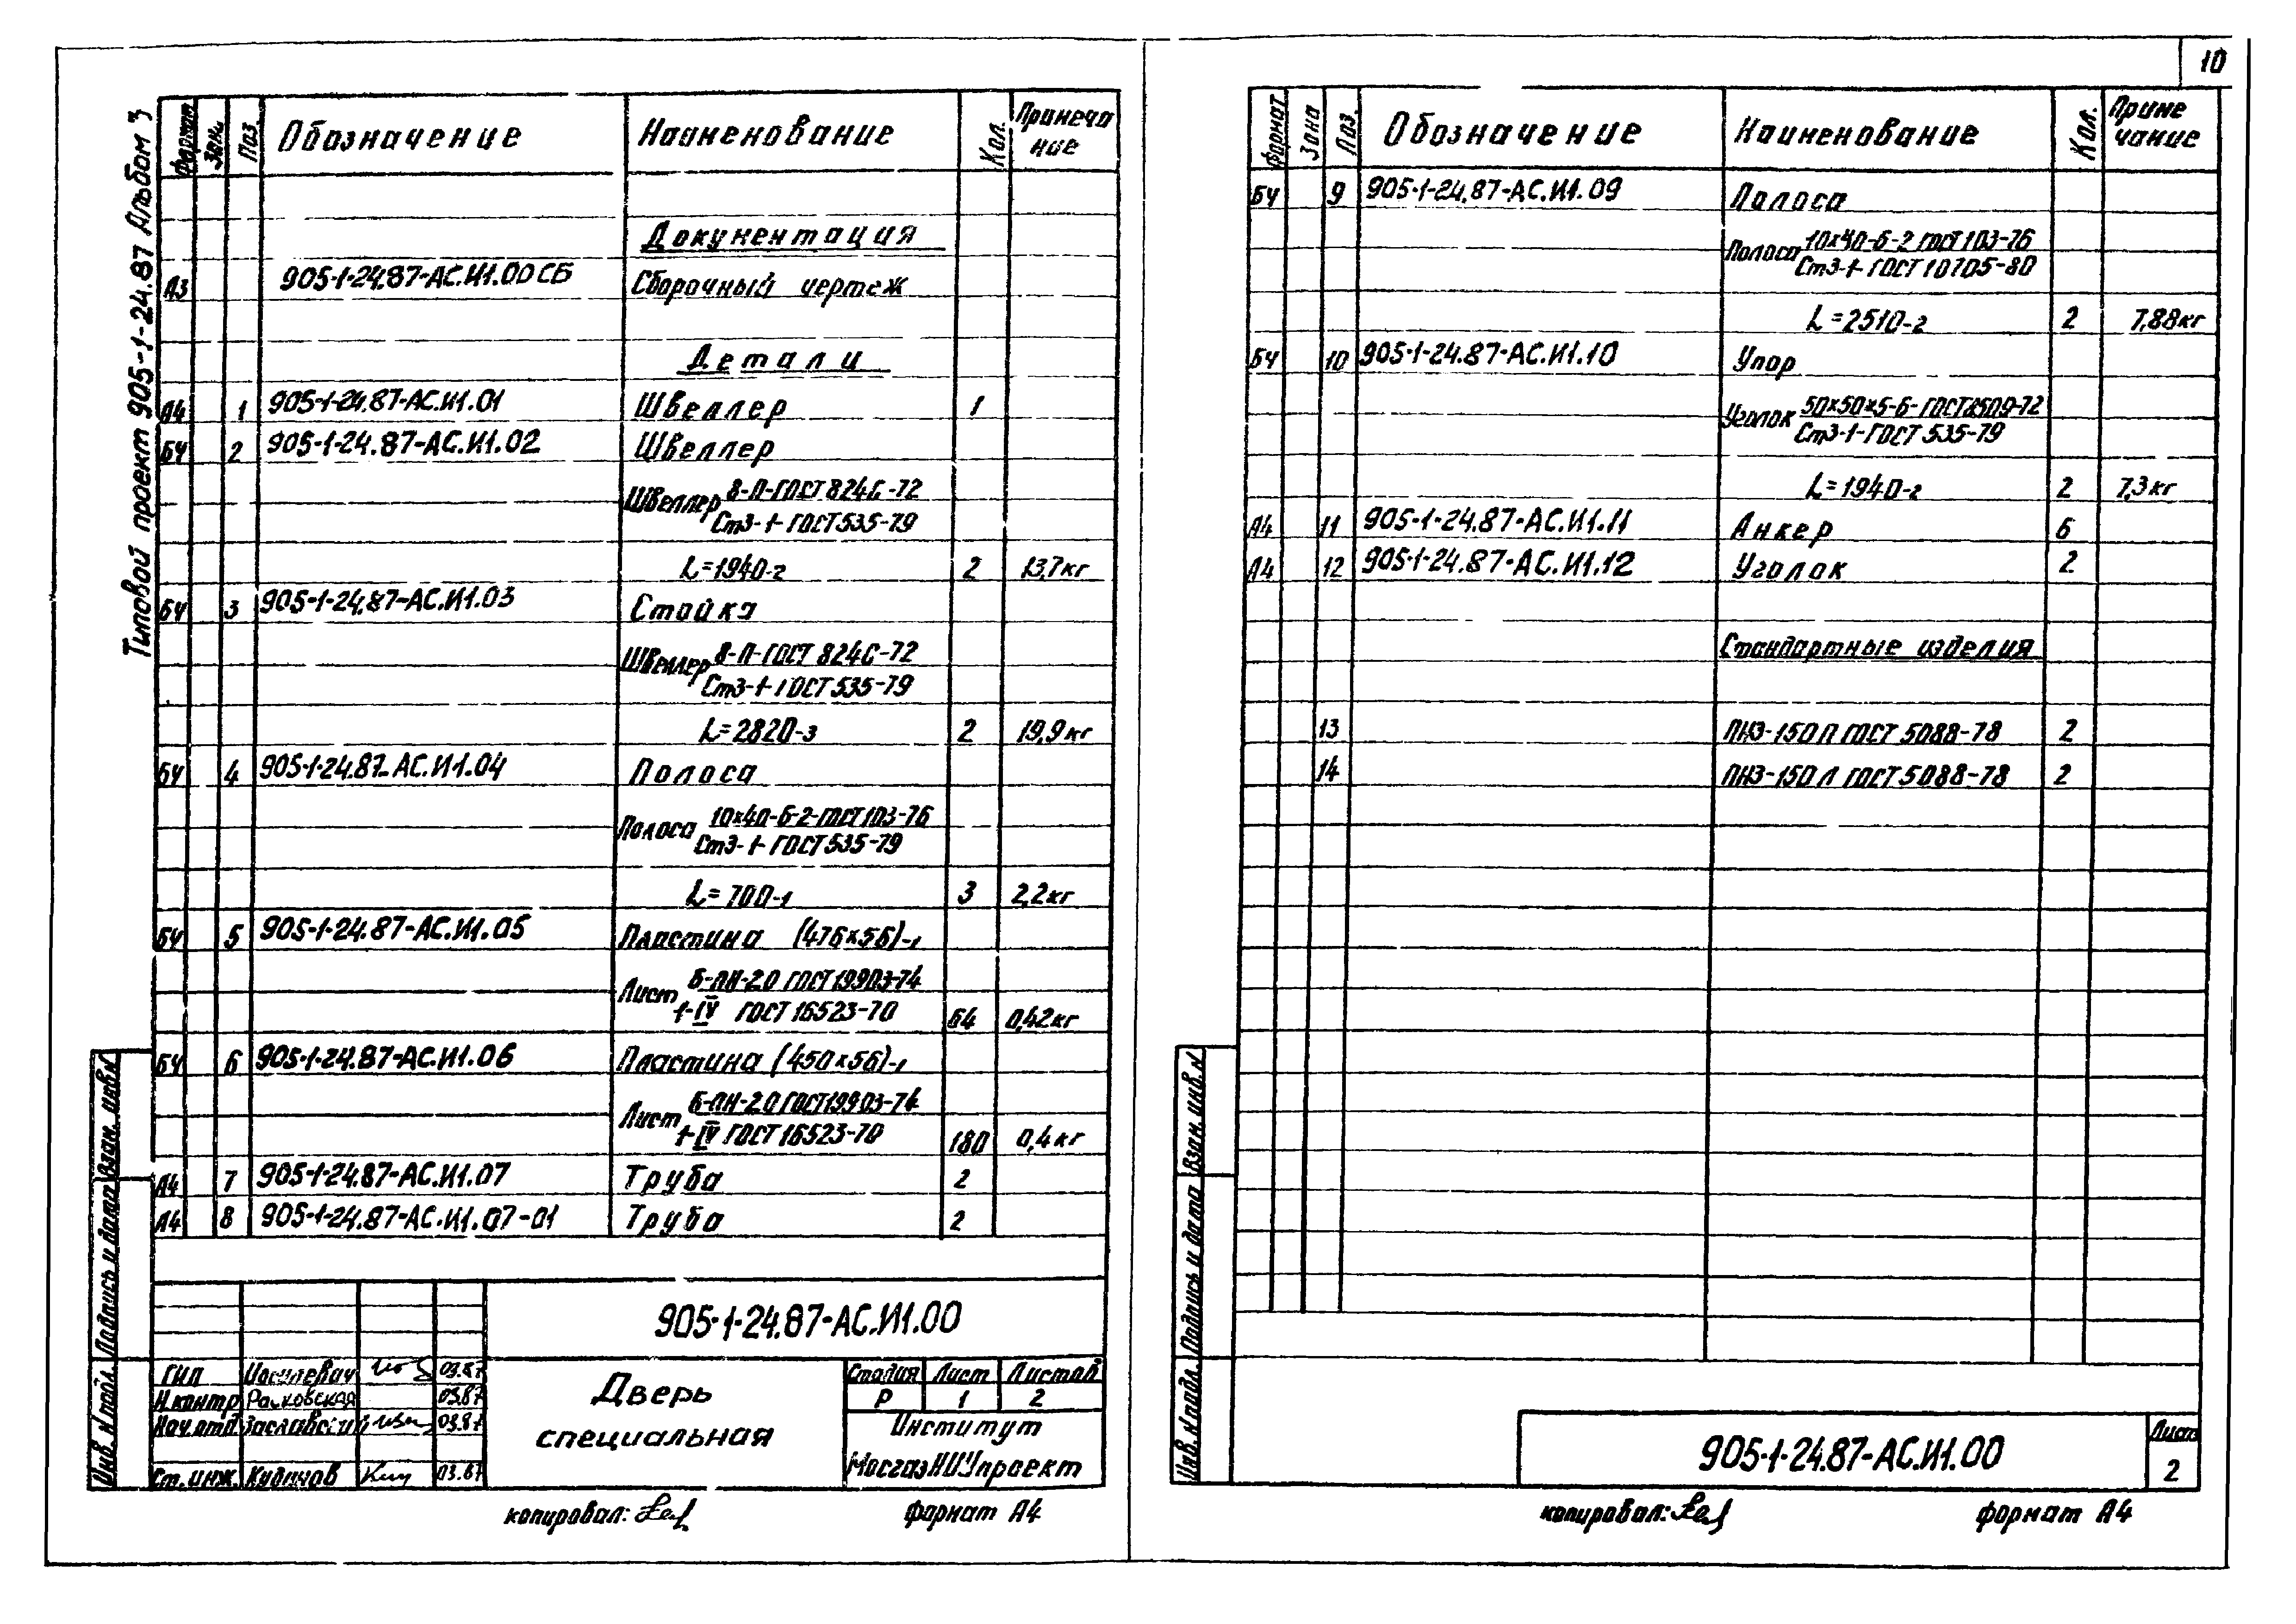 10
Типовой проект 905-1-24.87 Альбом 3
Формат Зона Поз. Обозначение Наименование Кол. Примеча
ние
Документация
А3 905-1-24.87-АС.И1.00 СБ Сборочный чертеж
Детали
А4 1 905-1-24.87-АС.И1.01 Швеллер 1
БЧ 2 905-1-24.87-АС.И1.02 Швеллер
Швеллер 8-П-ГОСТ 8240-72
Ст3-1-ГОСТ 535-79
L=1940-2 2 13,7кг
БЧ 3 905-1-24.87-АС.И1.03 Стойка
Швеллер 8-П-ГОСТ 8240-72
Ст3-1-ГОСТ 535-79
L=2820-3 2 19,9кг
БЧ 4 905-1-24.87-АС.И1.04 Полоса
Полоса 10х40-Б-2-ГОСТ 103-76
Ст3-1-ГОСТ 535-79
L=700-1 3 2,2кг
БЧ 5 905-1-24.87-АС.И1.05 Пластина (476х56)-1
Лист Б-ПН-2.0 ГОСТ 19903-74
1-IV ГОСТ 16523-70 64 0,42кг
БЧ 6 905-1-24.87-АС.И1.06 Пластина (450х56)-1
Лист Б-ПН-2.0 ГОСТ 19903-74
1-IV ГОСТ 16523-70 180 0,4кг
А4 7 905-1-24.87-АС.И1.07 Труба 2
А4 8 905-1-24.87-АС.И1.07-01 Труба 2
905-1-24.87-АС.И1.00
ГИП 03.87
Н.контр Раковская 03.87
Нач.отд. Заславский 03.87
Ст. инж. Кудинов 03.87
Дверь
специальная
Стадия Лист Листов
Р 1 2
Институт
МосгазНИИпроект
Инв. N подл. Подпись и дата Взам. инв. N
копировал: формат А4
Формат Зона Поз. Обозначение Наименование Кол. Приме
чание
БЧ 9 905-1-24.87-АС.И1.09 Полоса
Полоса 10х40-Б-2 ГОСТ 103-76
Ст3-1-ГОСТ 10705-80
L=2510-2 2 7,88кг
БЧ 10 905-1-24.87-АС.И1.10 Упор
Уголок 50х50х5-Б-ГОСТ 8509-72
Ст3-1-ГОСТ 535-79
L=1940-2 2 7,3кг
А4 11 905-1-24.87-АС.И1.11 Анкер 6
А4 12 905-1-24.87-АС.И1.12 Уголок 2
Стандартные изделия
13 ПН3-150 П ГОСТ 5088-78 2
14 ПН3-150 Л ГОСТ 5088-78 2
Инв. N подл. Подпись и дата Взам. инв. N
905-1-24.87-АС.И1.00
Лист
2
копировал: формат А4